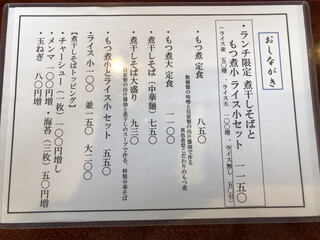 おしながき
・ランチ限定 煮干しそばと
もつ煮小 ライス小セット 一一五〇
・もつ煮 定食 八五〇
・もつ煮大 定食
・煮干しそば(中華麺) 七五〇
・煮干しそば大盛り 九三〇
・もつ煮小とライス小 セット 五五〇
・ライス小 一〇〇 並一五〇 大二〇〇
【煮干しそばトッピング】
・チャーシュー(一枚) 一〇〇円増し
・メンマ 一〇〇円増・海苔(三枚)五〇円増
・玉ねぎ 八〇円増